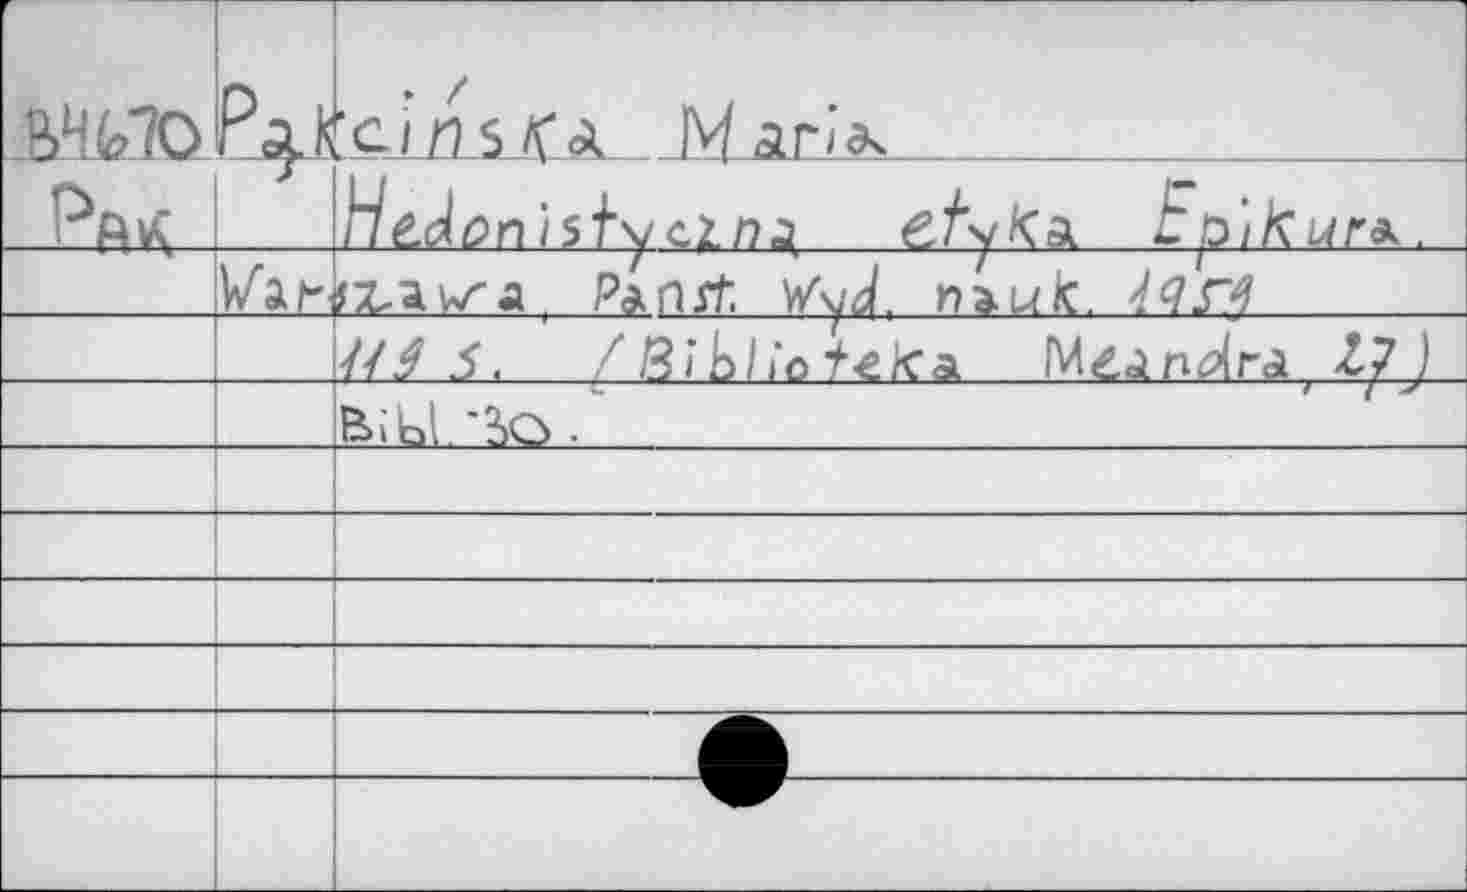 B4670 Pąkcińska Maria
Pąk Hedonistyczna etyka Epikura.
Warszawa, Panst. Wyd. nauk. 1959
119 s. (Biblioteka Meandra, 27)
Bibl. 30.